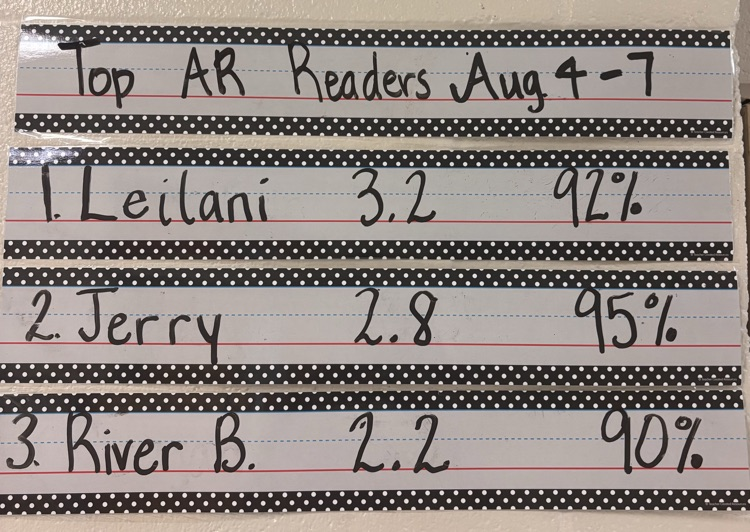 Top AR Readers Aug. 4-7
1. Leilani 3.2 92%
2. Jerry 2.8 95%
3. River B. 2.2 90%